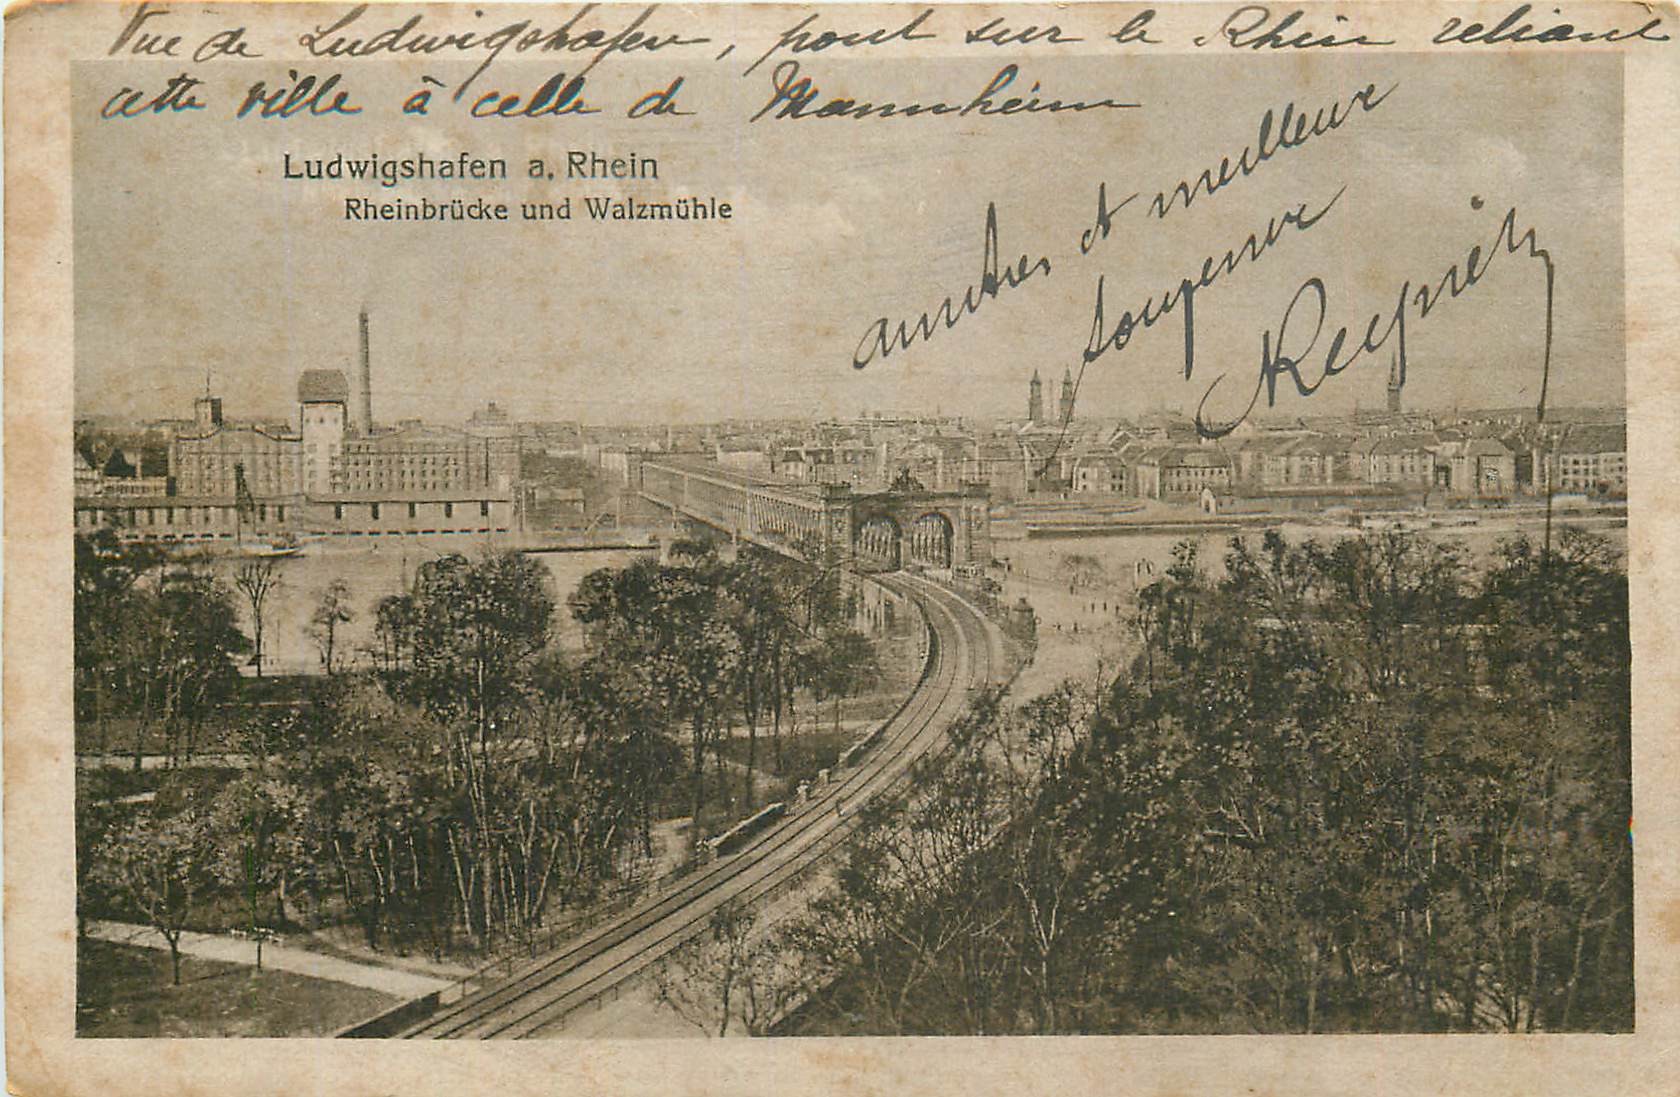 Vue de Ludwigshafen, pont sur le Rhin reliant
cette ville à celle de Mannheim
Ludwigshafen a. Rhein
Rheinbrücke und Walzmühle
amitiés et meilleur
souvenir